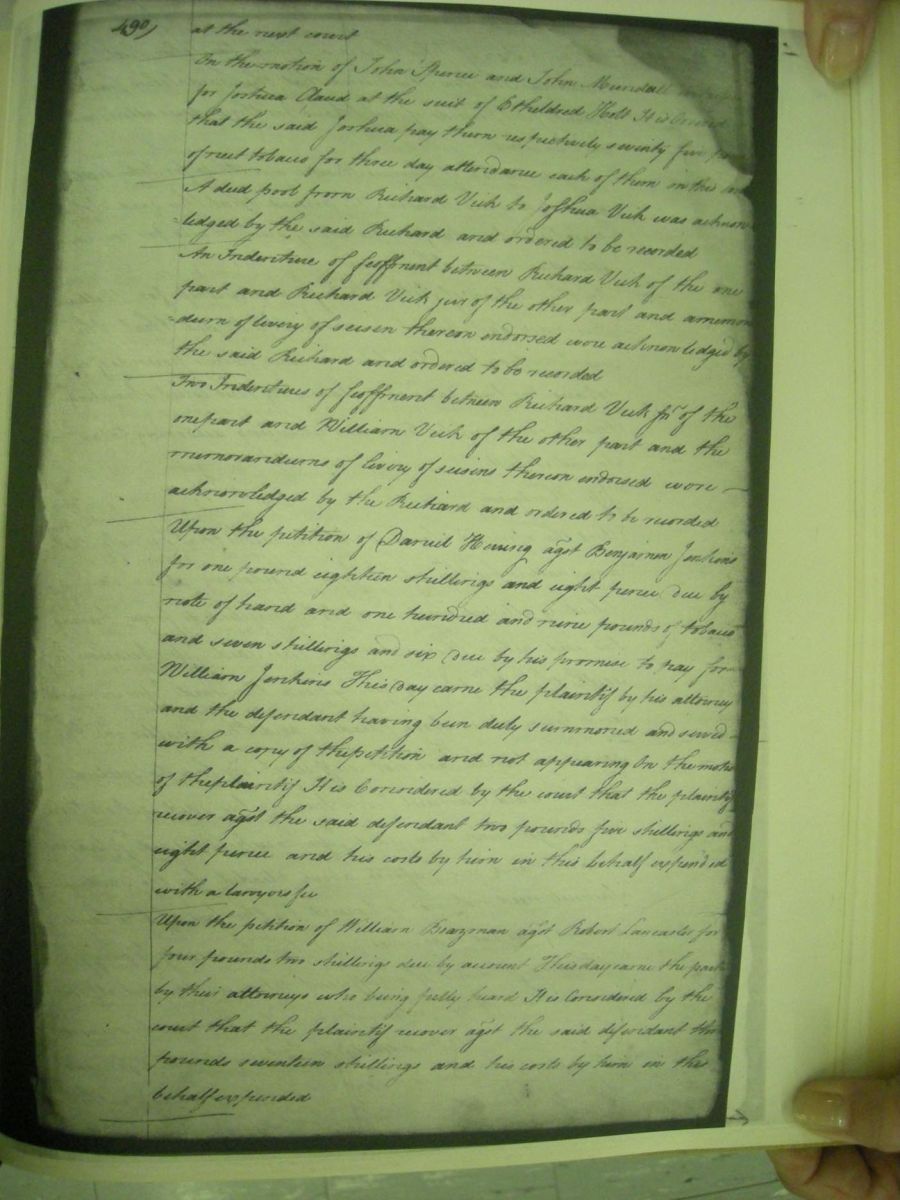 490)
at the next court
On the motion of John Spence and John Mundall
for Joshua Claud at the suit of Etheldred Holt It is Ordered
that the said Joshua pay them respectively seventy five
of neet tobacco for three day attendance each of them in this
A deed pool from Richard Vick to Joshua Vick was acknow
=ledged by the said Richard and ordered to be recorded
An Indenture of feoffment between Richard Vick of the one
part and Richard Vick jur of the other part and a memoran
=dum of livery of seisen thereon endorsed were acknowledged by
the said Richard and ordered to be recorded
Two Indentures of feoffment between Richard Vick Jnr of the
one part and William Vick of the other part and the
memorandums of livery of seisins thereon endorsed were
acknowledged by the Richard and ordered to be recorded
Upon the petition of Daniel Herring agst Benjamen Jenkins
for one pound eighteen shillings and eight pence due by
note of hand and one hundred and nine pounds of tobacco
and seven shillings and six due by his promise to pay for
William Jenkins This day came the plaintif by his attorney
and the defendant having been duly summoned and served
with a copy of the petition and not appearing On the motion
of the plaintif It is Considered by the court that the plaintif
recover agst the said defendant two pounds five shillings and
eight pence and his costs by him in this behalf expended
with a lawyers fee
Upon the petition of William Beazman agst Robert Lancaster for
four pounds two shillings due by account This day came the parties
by their attorneys who being fully heard It is Considered by the
court that the plaintif recover agst the said defendant three
pounds seventeen shillings and his costs by him in this
behalf expended